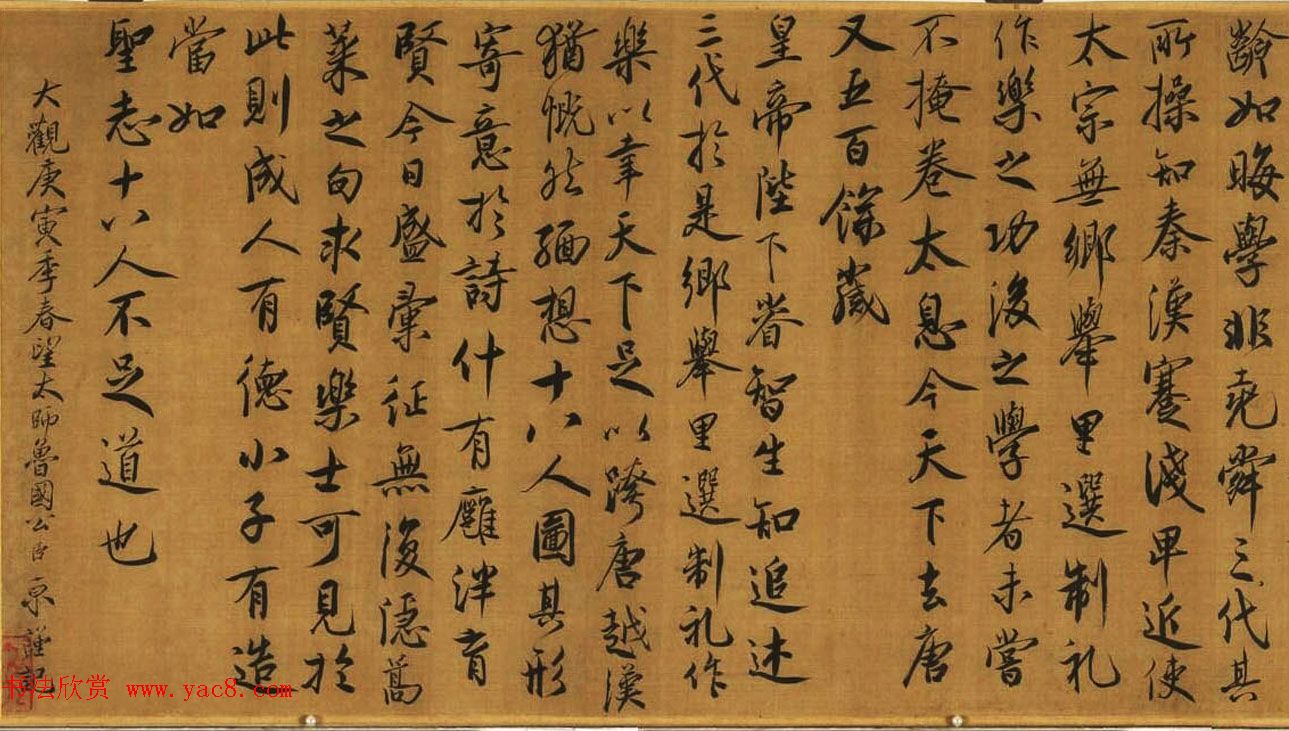 齡如晦學非堯舜三代其
所操知秦漢蹇淺卑近使
太宗無鄉舉里選制礼
作樂之功後之學者未嘗
不掩卷太息今天下去唐
又五百餘歲
皇帝陛下睿智生知追述
三代於是鄉舉里選制礼作
樂以幸天下足以跨唐越漢
猶慨然緬想十八人圖其形
寄意於詩什有廱泮育
賢今日盛彙征無復隱蒿
萊之句求賢樂士可見於
此則成人有德小子有造
當如
聖志十八人不足道也
大觀庚寅季春望太師魯國公臣京謹記
书法欣赏 www.yac8.com